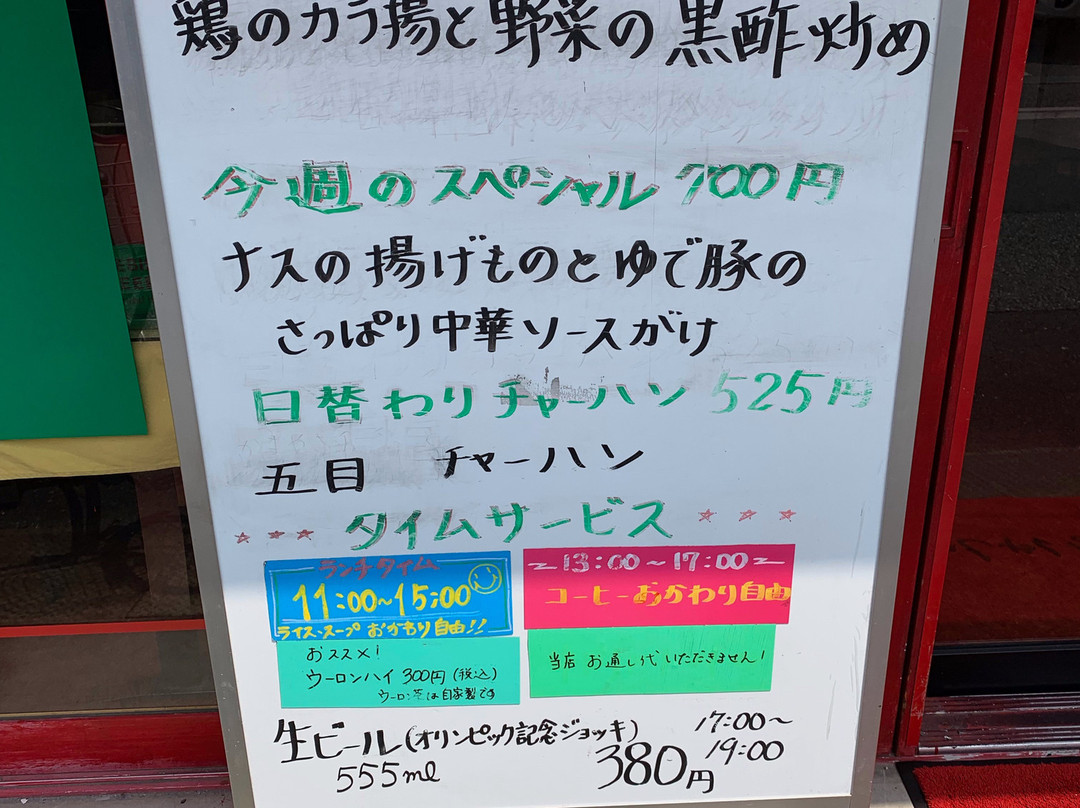 鶏のカラ揚と野菜の黒酢炒め
今週のスペシャル 700円
ナスの揚げものとゆで豚の
さっぱり中華ソースがけ
日替わりチャーハン 525円
五目 チャーハン
☆☆☆ タイムサービス ☆☆☆
ランチタイム
11:00~15:00
ライス、スープ おかわり自由!!
~13:00~17:00~
コーヒーおかわり自由
おススメ!
ウーロンハイ 300円(税込)
ウーロン茶は自家製です
当店 お通し代いただきません!
生ビール(オリンピック記念ジョッキ)
555ml
380円
17:00~
19:00